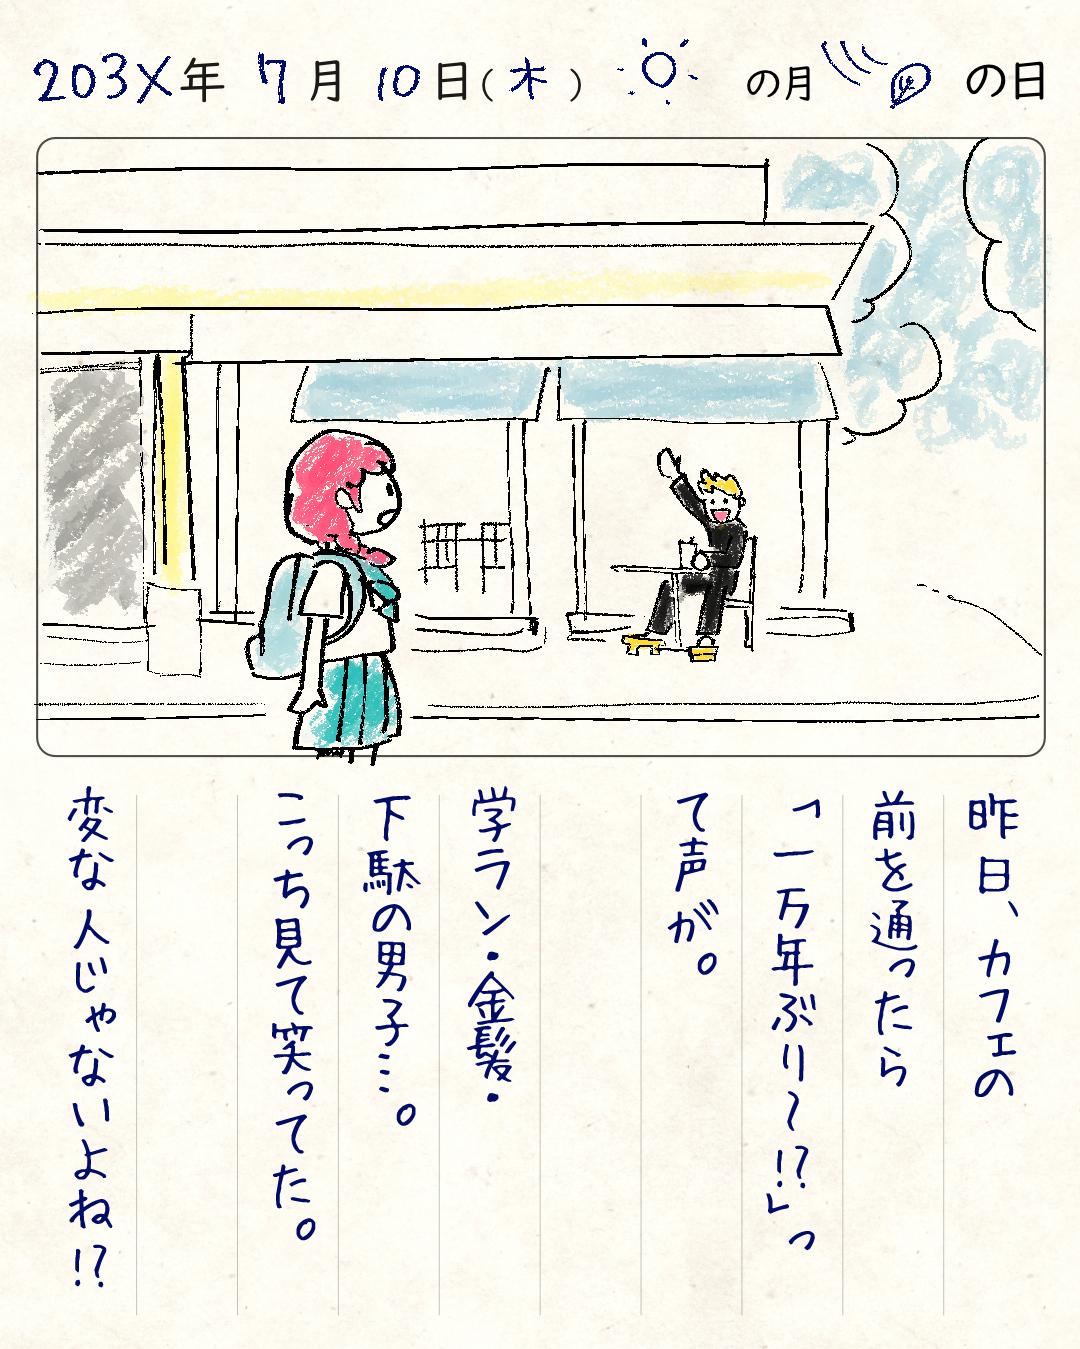 203X年 7月 10日(木) の月 の日
昨日、カフェの
前を通ったら
「一万年ぶり〜!?」っ
て声が。
学ラン・金髪・
下駄の男子…。
こっち見て笑ってた。
変な人じゃないよね!?